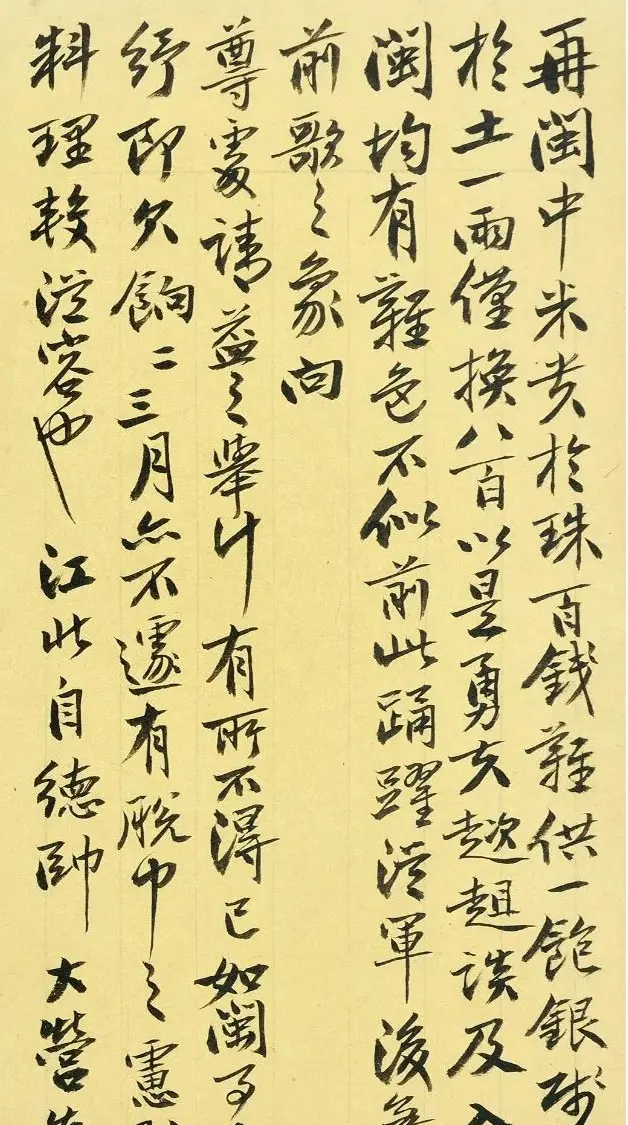 再閩中米貴於珠百錢難供一飽銀賤
於土一兩僅換八百以是勇夫趑趄談及入
閩均有難色不似前此踴躍從軍後舞
前歌之象向
尊處請益之舉計有所不得已如閩事
紓即欠餉二三月亦不遽有脫巾之慮
料理較從容也 江北自德帥大營